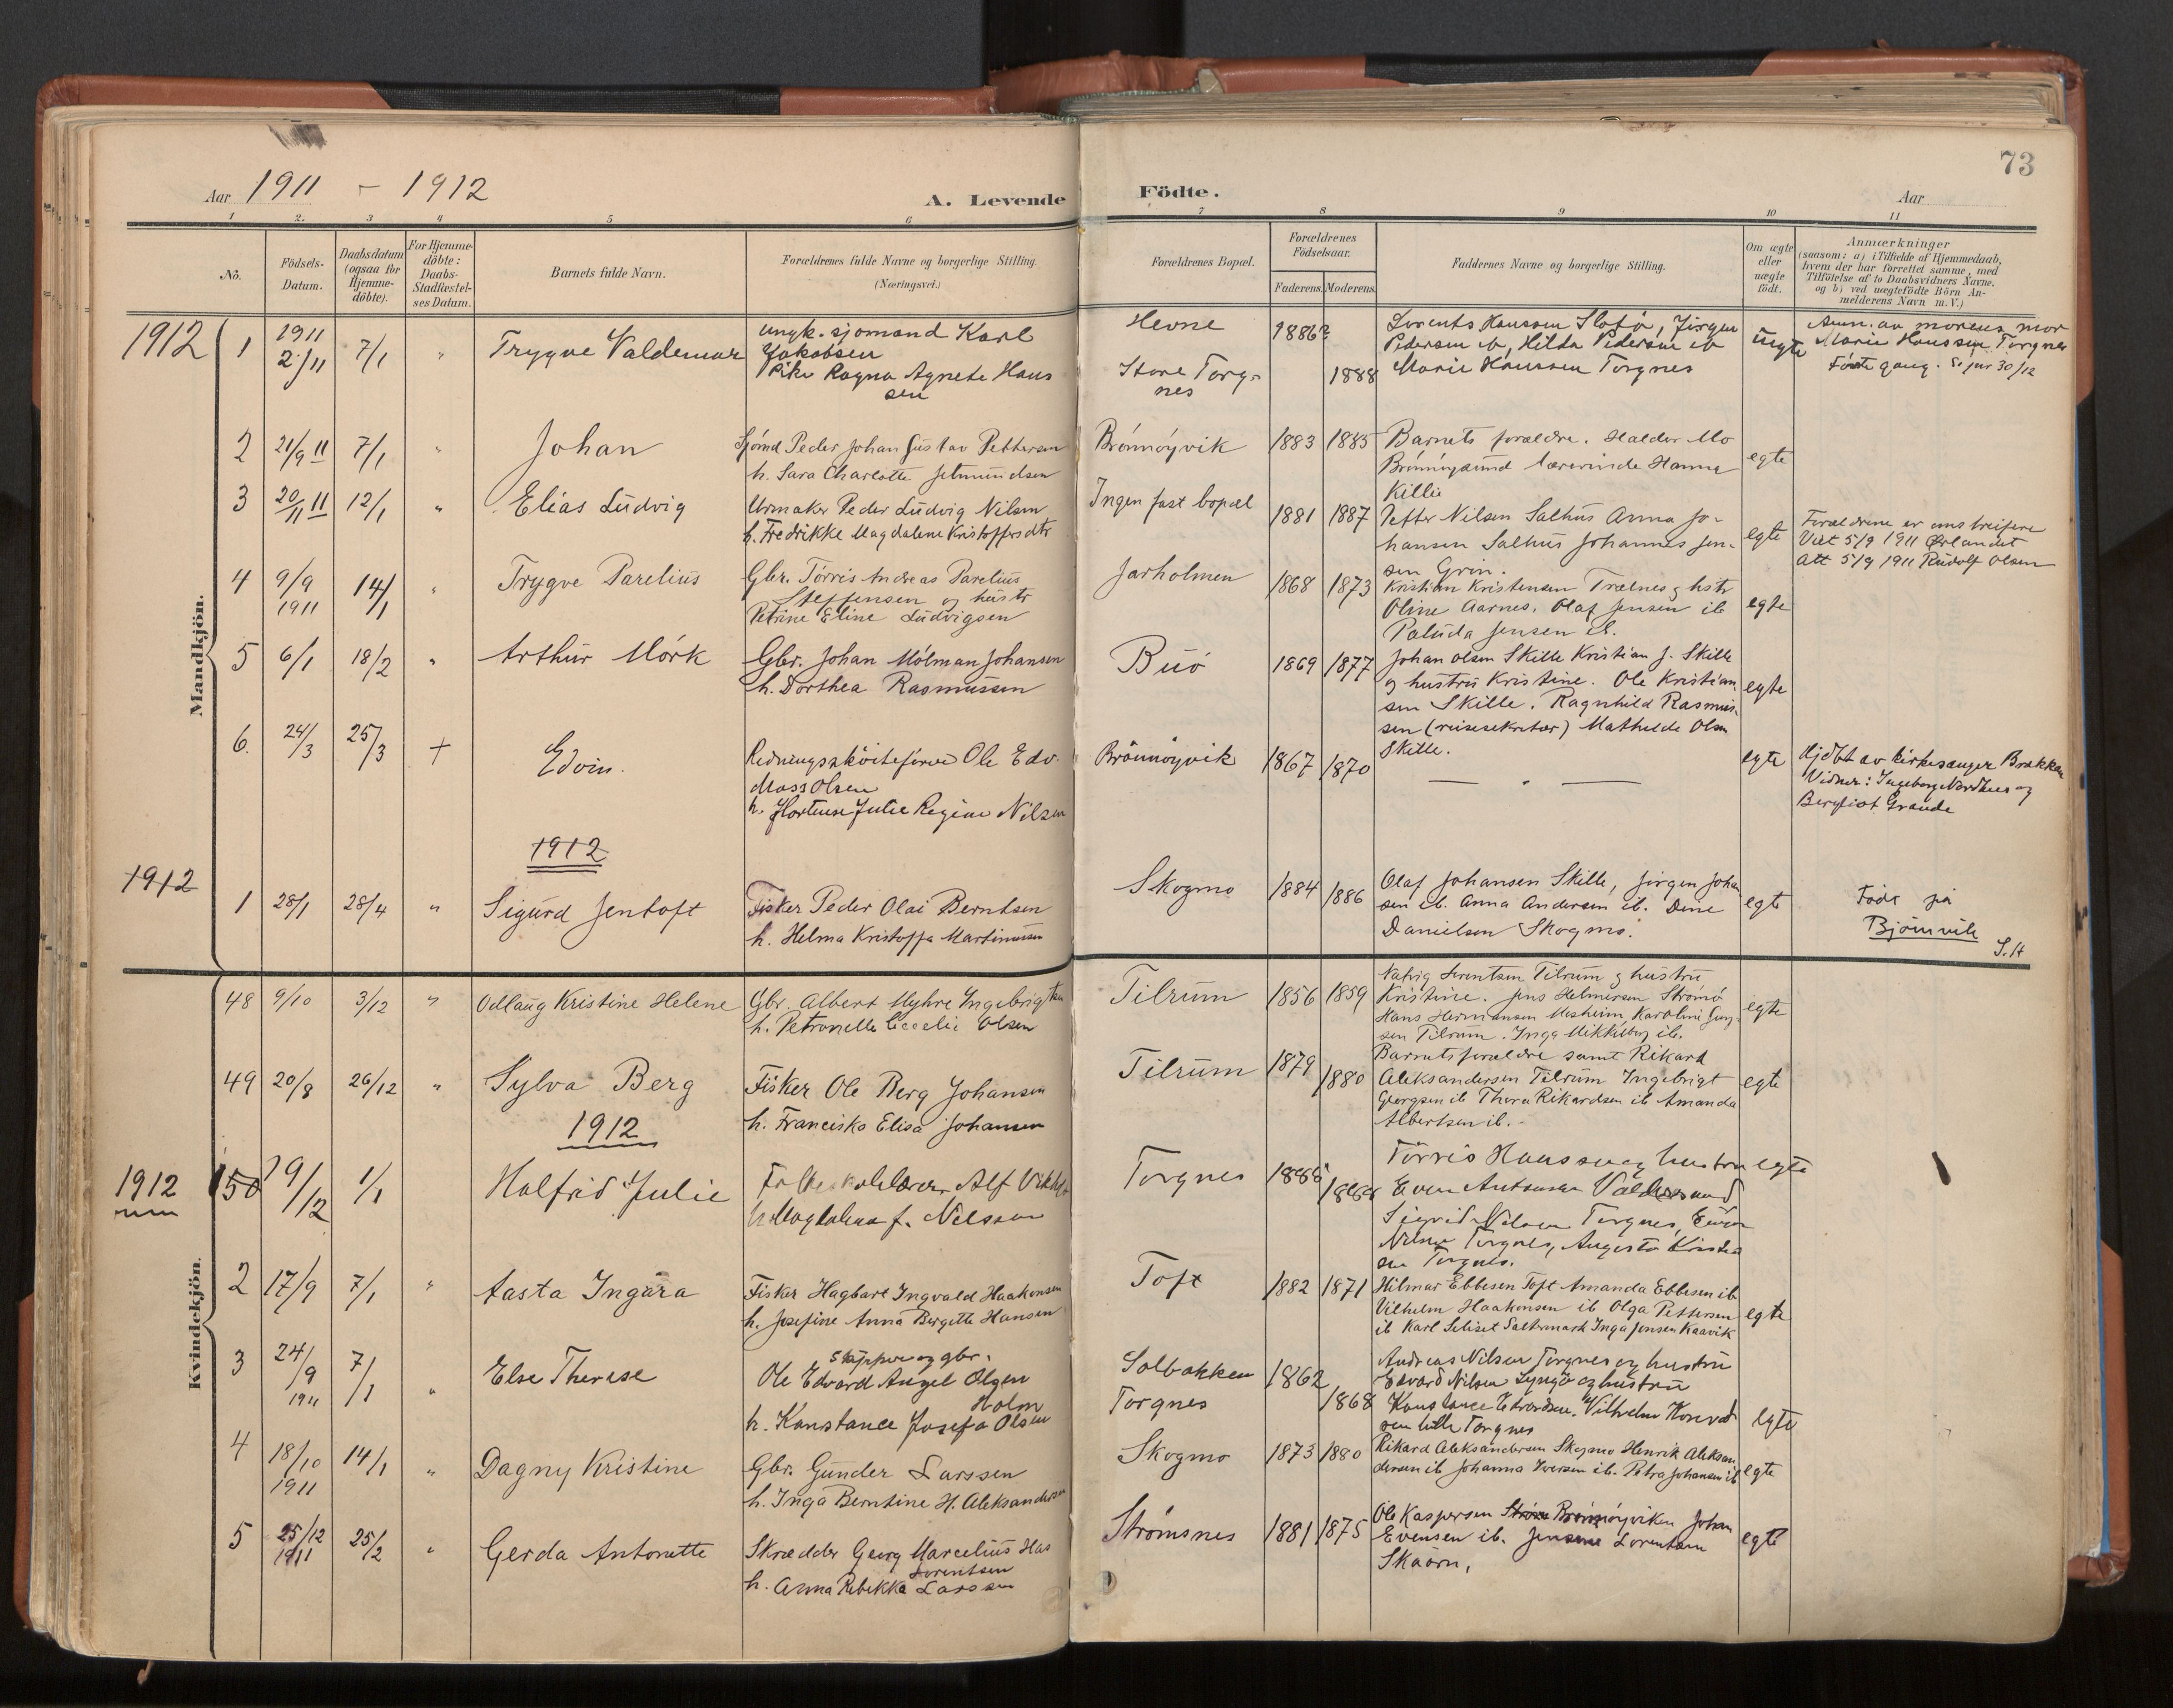 73
Aar 1911 – 1912
A. Levende
Födte.
Aar
1 2. 3 4 5 6 7 8 9 10 11
No.
Födsels-
Datum.
Daabsdatum
(ogsaa for
Hjemme-
döbte).
For Hjemme-
döbte:
Daabs-
Stadfæstel-
ses Datum.
Barnets fulde Navn.
Forældrenes fulde Navne og borgerlige Stilling.
(Næringsvei.)
Forældrenes Bopæl.
Forældrenes
Födselsaar.
Faderens. Moderens.
Faddernes Navne og borgerlige Stilling.
Om ægte
eller
uægte
födt.
Anmærkninger
(saasom: a) i Tilfælde af Hjemmedaab,
hvem der har forrettet samme, med
Tilföielse af to Daabsvidners Navne.
og b) ved uægtefödte Börn An-
melderens Navn m. V.)
Mandkjön.
1912
1
1911
2/11
7/1
"
Trygve Valdemar
ungk. sjømand Karl
Jakobsen
Pike Ragna Agnete Hans
sen
Hevne
Store Torg-
nes
1886?
1888
Lorents Hanssen Slotø, Jørgen
Pedersen ib, Hilda Pedersen ib
Marie Hanssen Torgnes
uegte
Anm. av morens mor
Marie Hanssen Torgnes
Første gang. 30/12
2
21/9 11
7/1
"
Johan
Sjømd Peder Johan Gustav Pettersen
h. Sara Charlotte
Brönnöyvik
1883
1885
Barnets forældre. Haldor Mo
Brönnöysund lærerinde Hanna
Killie
egte
3
20/11 11
12/1
"
Elias Ludvig
Urmaker Peder Ludvig Nilsen
h. Fredrikke Magdalene Kristoffersdtr
Ingen fast bopæl
1881
1887
Petter Nilsen Salhus Anna Jo-
hansen Salhus Johannes Jen-
sen Grin.
egte
Forældrene er omstreifere
Viet 5/9 1911 Ørlandet
Att 5/9 1911 Rudolf Olsen
4
9/9
1911
14/1
"
Trygve Parelius
Gbr. Törris Andreas Parelius
Steffensen og hustr
Petrine Eline Ludvigsen
Jarholmen
1868
1873
Kristian Kristensen Trælnes og hstr
Oline Aarnes. Olaf Jensen ib
Paluda Jensen ib.
egte
5
6/1
18/2
"
Arthur Mörk
Gbr. Johan Mölman Johansen
h. Dorthea Rasmussen
Buö
1869
1877
Johan Olsen Skille Kristian J. Skille
og hustru Kristine. Ole Kristian
sen Skille. Ragnhild Rasmus-
sen (reisesekretær) Mathilde Olsen
Skille.
egte
6.
24/3
25/3
+
Edvin.
Redningsskøitefører Ole Edv.
Moss Olsen
h. Hortense Julie Regine Nilsen
Brönnöyvik
1867
1870
— " —
egte
Hjdbt av kirkesanger Brækken
Vidner: Ingeborg Nordhus og
Bergliot Grande
1912
1912
1
28/1
28/4
"
Sigurd Jentoft
Fisker Peder Olai Berntsen
h. Helma Kristoffa Martinussen
Skogmo
1884
1886
Olaf Johansen Skille, Jörgen Johan
sen ib. Anna Andersen ib. Dine
Danielsen Skogmo.
egte
Född på
Bjørnvik
S.H
Kvindekjön.
48
9/10
3/12
"
Odlaug Kristine Helene
Gbr. Albert Myhre Ingebrigtsen
h. Petronelle Cecelie Olsen
Tilrum
1856
1859
Lorentsen Tilrum og hustru
Kristine. Jens Helmersen Strömö
Hans Hermansen Karoline
sen Tilrum. Inga ib.
egte
49
20/8
26/12
"
Sylva Berg
Fisker Ole Berg Johansen
h. Franciska Elisa Johansen
Tilrum
1879
1880
Barnets forældre samt Rikard
Aleksandersen Tilrum Ingebrigt
Georgsen ib Thora Rikardsen ib Amanda
Albertsen ib.
egte
1912
1912
1
50
9/12
1/1
Halfrid Julie
Folkeskolelærer Alf
h. Magdalena f. Nilsson
Torgnes
Törris Hanssen og hustru
Even Antonsen Valdersund
Sigrid Nilsen Torgnes,
Nilsen Torgnes, Augusta
sen Torgnes.
egte
2
17/9
7/1
"
Aasta Ingara
Fisker Hagbart Ingvald Haakonsen
h. Josefine Anna Bergette Hansen
Toft
1882
1871
Hilmar Ebbesen Toft Amanda Ebbesen ib
Vilhelm Haakonsen ib Olga Pettersen
ib Karl Saltermark Inga Jensen Kaavik
egte
3
24/9
1911
7/1
"
Else Therese
Skipper og gbr.
Ole Edvard Angel Olsen
Holm
h. Konstance Josefa Olsen
Solbakken
Torgnes
1862
1868
Andreas Nilsen Torgnes og hustru
Edvard Nilsen Lyngö og hustru
Konstance Edvardsen. Vilhelm Konrad
sen lille Torgnes
egte
4
18/10
1911
14/1
"
Dagny Kristine
Gbr. Gunder Larssen
h. Inga Berntine H. Aleksandersen
Skogmo
1873
1880
Rikard Aleksandersen Skogmo Henrik Aleksan
dersen ib Johanna Iversen ib. Petra Johansen ib
egte
5
25/12
1911
25/2
"
Gerda Antonette
Skrædder Georg Marcelius Has
Lorentsen
h. Anna Rebekka Larssen
Strömsnes
1881
1875
Ole Kaspersen Brönnöyviken Johan
Evensen ib. Lorentsen
Skaarn,
egte